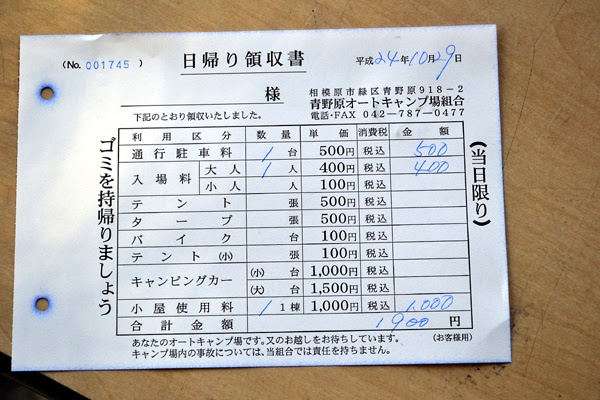 (No. 001745)
日帰り領収書
平成24年10月29日
様
下記のとおり領収いたしました。
相模原市緑区青野原918-2
青野原オートキャンプ場組合
電話・FAX 042-787-0477
ゴミを持帰りましょう
利用区分 数量 単価 消費税 金額
通行駐車料 1台 500円 税込 500
入場料 大人 1人 400円 税込 400
小人 人 100円 税込
テント 張 500円 税込
タープ 張 500円 税込
バイク 台 100円 税込
テント(小) 張 100円 税込
キャンピングカー (小) 台 1,000円 税込
(大) 台 1,500円 税込
小屋使用料 1 1棟 1,000円 税込 1,000
合計金額 1900円
(当日限り)
あなたのオートキャンプ場です。又のお越しをお待ちしています。
キャンプ場内の事故については、当組合では責任を持ちません。
(お客様用)